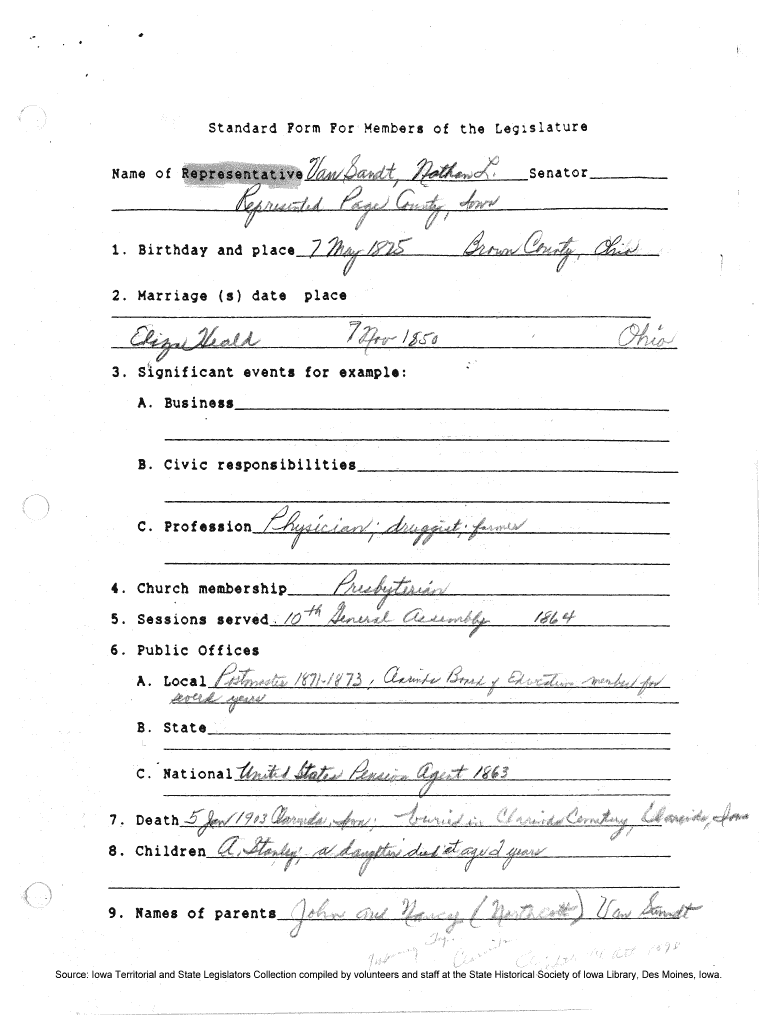 Standard Form For Members of the Legislature
Name of Representative Van Sandt, Nathan L. Senator
Represented Page County, Iowa
1. Birthday and place 7 May 1825 Brown County, Ohio
2. Marriage (s) date place
Eliza Heald 7 Nov 1850 Ohio
3. Significant events for example:
A. Business
B. Civic responsibilities
C. Profession Physician; druggist; farmer
4. Church membership Presbyterian
5. Sessions served 10th General Assembly 1864
6. Public Offices
A. Local Postmaster 1871-1873; Clarinda Board of Education member for
several years
B. State
C. National United States Pension Agent 1863
7. Death 5 Jan 1903 Clarinda, Iowa; buried in Clarinda Cemetery, Clarinda, Iowa
8. Children A. Stanley; a daughter died at age 2 years
9. Names of parents John and Nancy (Northcott) Van Sandt
Source: Iowa Territorial and State Legislators Collection compiled by volunteers and staff at the State Historical Society of Iowa Library, Des Moines, Iowa.